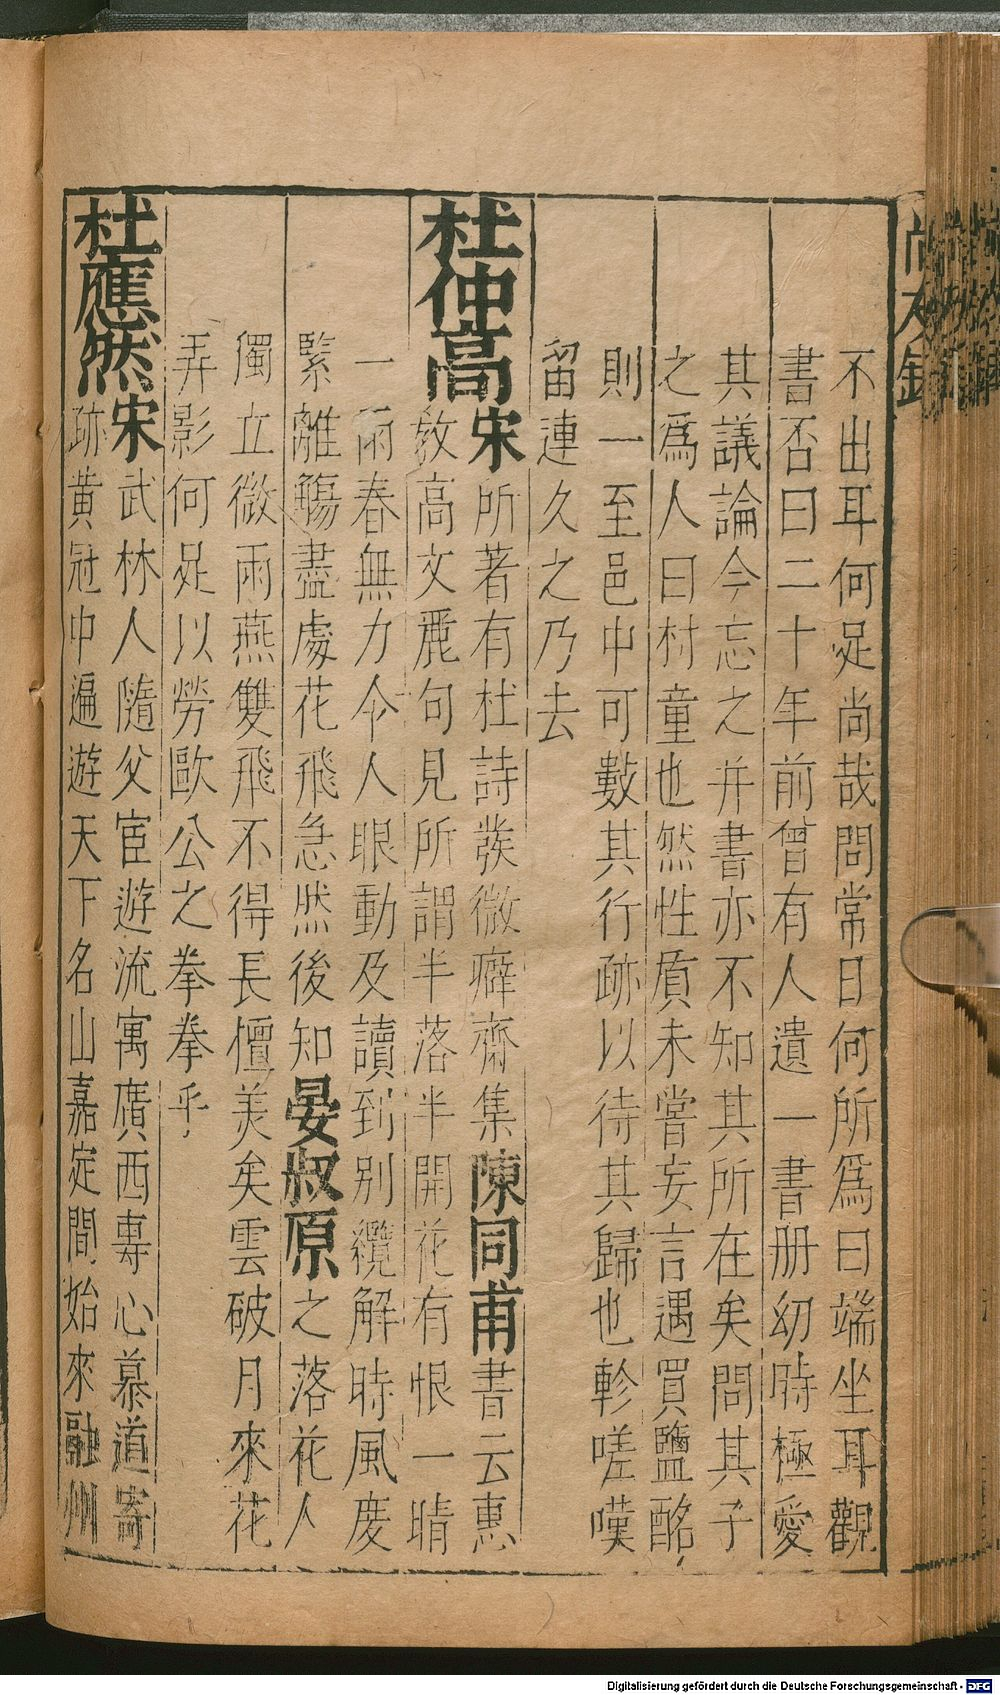 不出耳何足尚哉問常日何所爲曰端坐耳觀
書否曰二十年前曾有人遺一書册幼時極愛
其議論今忘之并書亦不知其所在矣問其子
之爲人曰村童也然性質未嘗妄言遇買鹽酪
則一至邑中可數其行跡以待其歸也軫嗟嘆
留連久之乃去
杜仲高宋所著有杜詩發微癖齋集陳同甫書云惠
教高文麗句見所謂半落半開花有恨一晴
一雨春無力令人眼動及讀到别纜解時風度
緊離觴盡處花飛急然後知晏叔原之落花人
獨立微雨燕雙飛不得長擅美矣雲破月來花
弄影何足以勞歐公之拳拳乎
杜應然宋武林人隨父宦遊流寓廣西專心慕道寄
跡黃冠中遍遊天下名山嘉定間始來融州
Digitalisierung gefördert durch die Deutsche Forschungsgemeinschaft - DFG